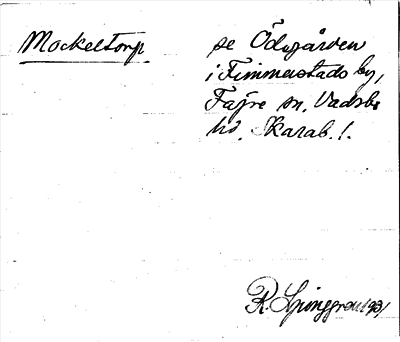 Mockeltorp. se Ödegården
i Fimmerstads by,
Fägre sn. Vadsbo
hd. Skarab. l.
R. Ljunggren 1931